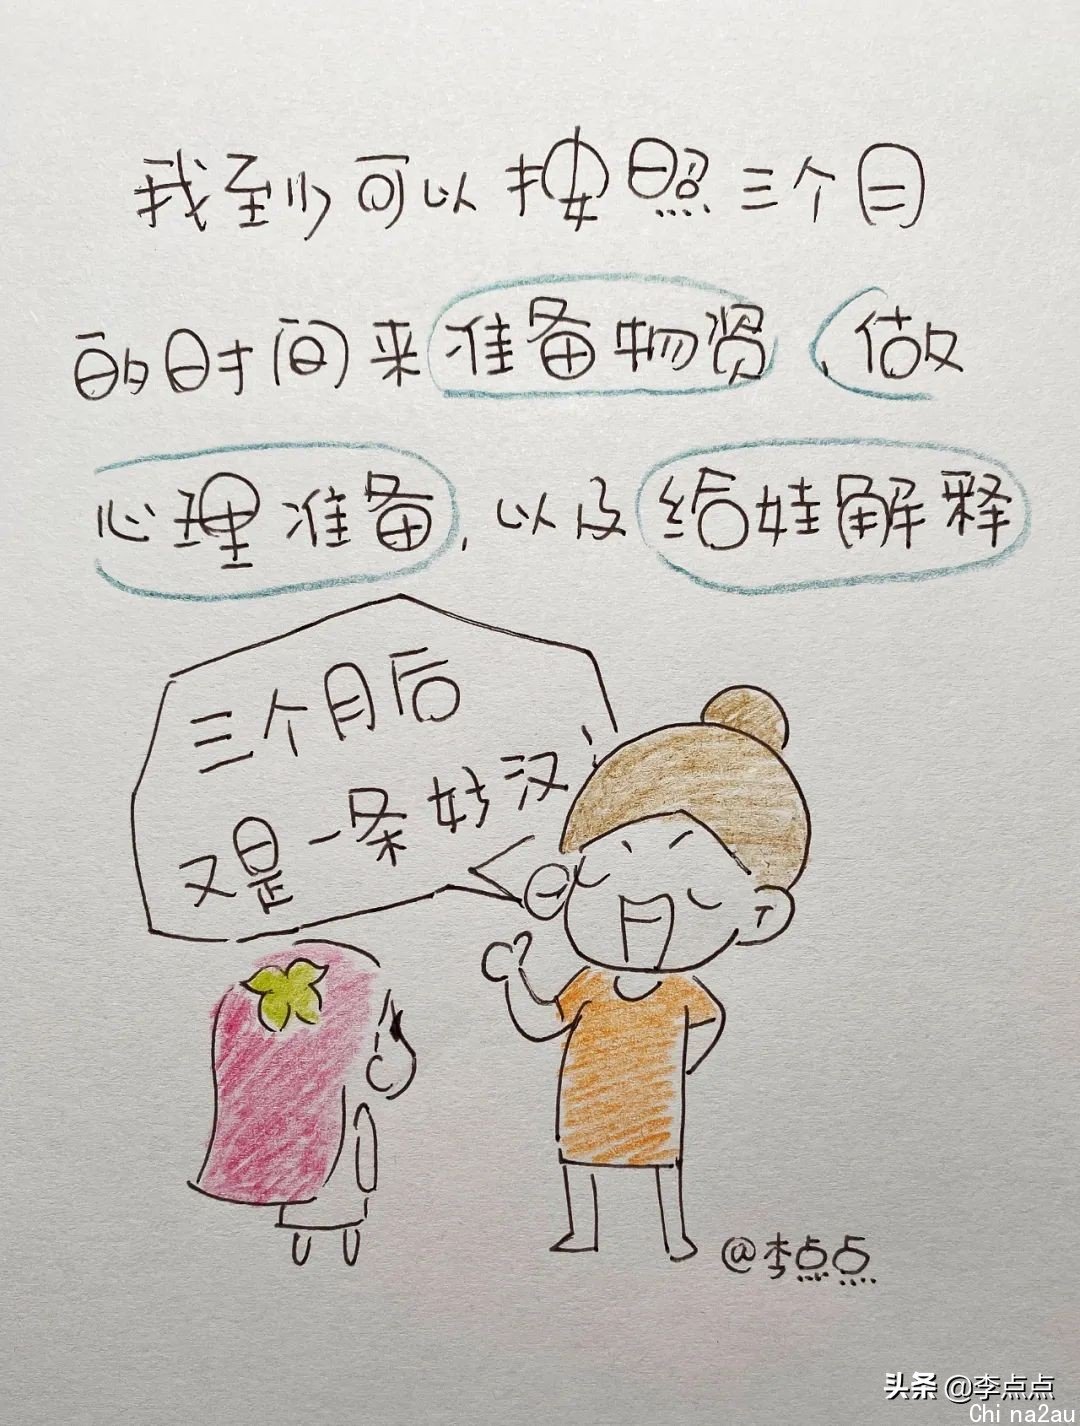 我到少可以按照三个月
的时间来准备物资,做
心理准备,以及给娃解释
三个月后
又是一条好汉!
@李点点
头条 @李点点
Chi na2au